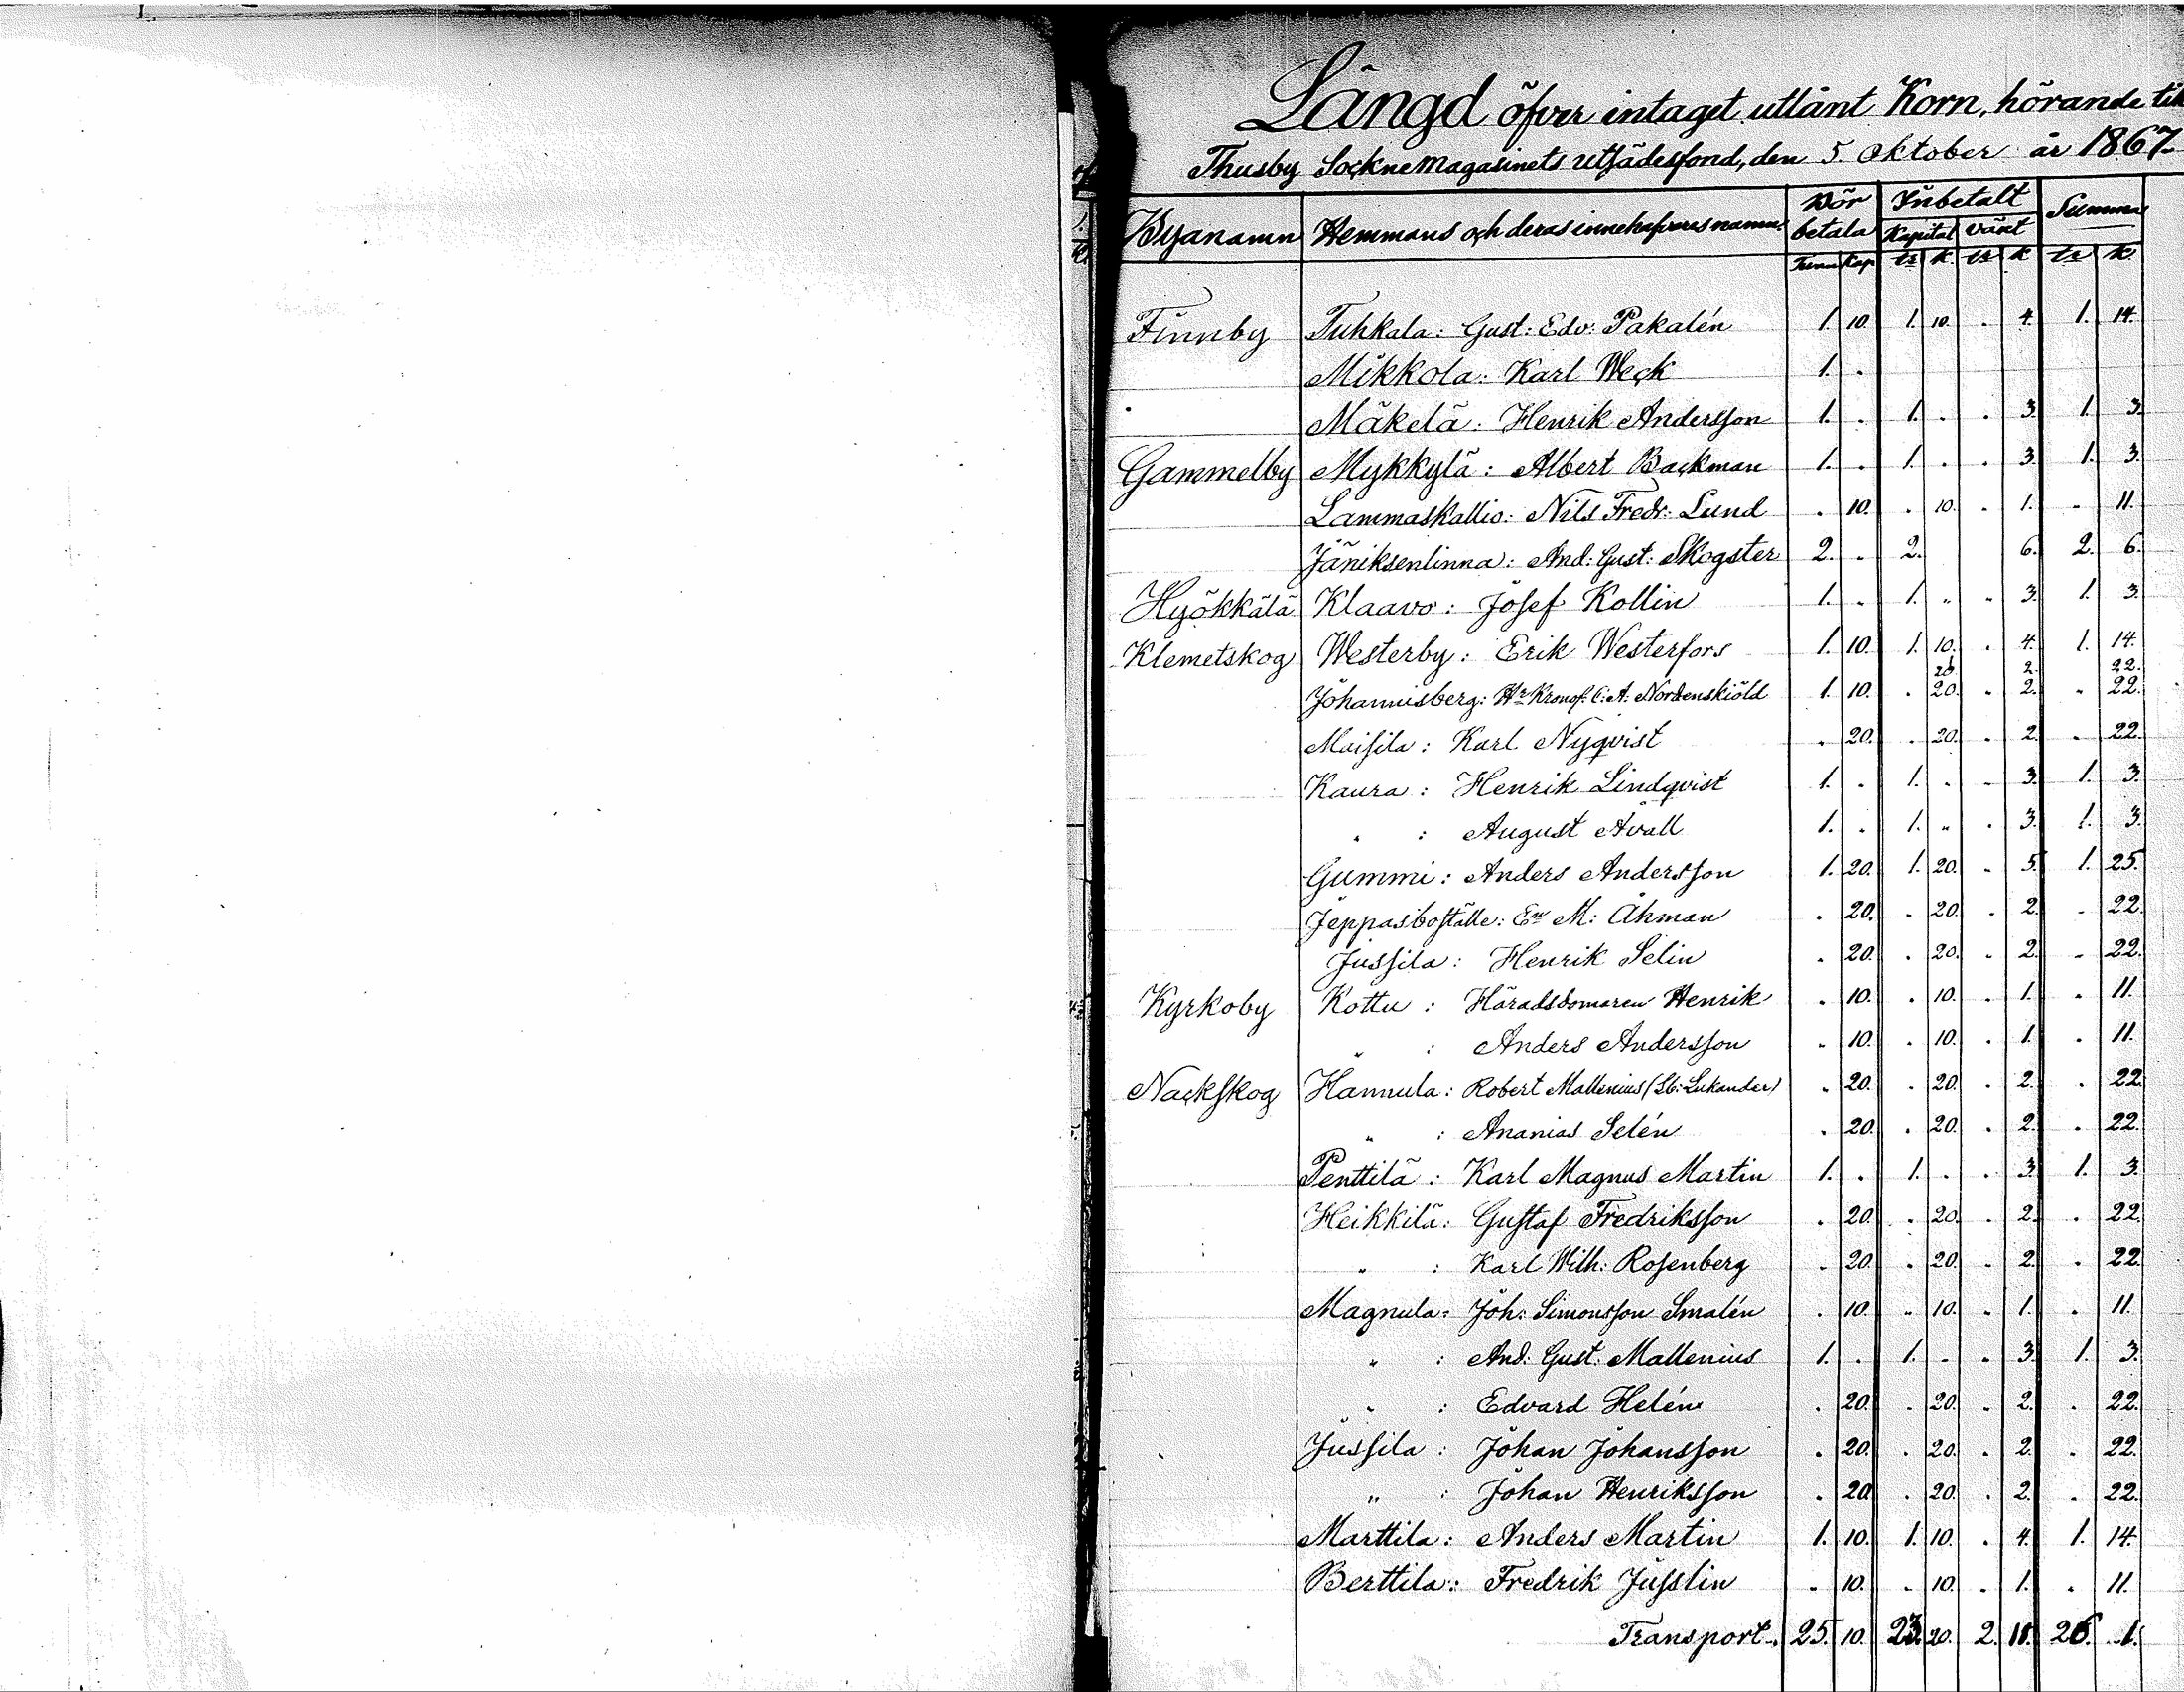 Längd öfver intaget utlånt Korn, hörande till
Thusby Sockne magasinets utsädesfond, den 5 Oktober år 1867
Byanamn Hemmans och deras innehafvares namn Bör betala Inbetalt Summa
Kapital växt
Tunn Kap tr k tr k tr k
Finnby Tuhkala: Gust: Edv: Pakalén 1. 10. 1. 10. . 4. 1. 14.
Mikkola: Karl Weck 1. .
Mäkelä: Henrik Andersson 1. . 1. . . 3. 1. 3.
Gammelby Mykkylä: Albert Backman 1. . 1. . . 3. 1. 3.
Lammaskallio: Nils Fredr: Lund . 10. . 10. . 1. . 11.
Jäniksenlinna: And: Gust: Skogster 2. . 2. 6. 2. 6.
Hyökkälä Klaavo: Josef Kollin 1. . 1. . . 3. 1. 3.
Klemetskog Westerby: Erik Westerfors 1. 10. 1. 10. . 4. 1. 14.
20 2. 22.
Johannisberg: Hr Kronof. C: A: Nordenskiöld 1. 10. . 20. . 2. . 22.
Moisila: Karl Nyqvist . 20. . 20. . 2. . 22.
Kaura: Henrik Lindqvist 1. . 1. . . 3. 1. 3.
" : August Avall 1. . 1. . . 3. 1. 3.
Gummi: Anders Andersson 1. 20. 1. 20. . 5. 1. 25.
Jeppasboställe: En M: Åhman . 20. . 20. . 2. . 22.
Jussila: Henrik Selin . 20. . 20. . 2. . 22.
Kyrkoby Kottu: Häradsdomaren Henrik . 10. . 10. . 1. . 11.
" : Anders Andersson . 10. . 10. . 1. . 11.
Nackskog Hannula: Robert Mallenius (Lb: Lukander) . 20. . 20. . 2. . 22.
" : Ananias Selén . 20. . 20. . 2. . 22.
Penttilä: Karl Magnus Martin 1. . 1. . . 3. 1. 3.
Heikkilä: Gustaf Fredriksson . 20. . 20. . 2. . 22.
" : Karl Wilh: Rosenberg . 20. . 20. . 2. . 22.
Magnula: Joh: Simonsson Smalén . 10. . 10. . 1. . 11.
" : And: Gust: Mallenius 1. . 1. . . 3. 1. 3.
" : Edvard Helén . 20. . 20. . 2. . 22.
Jussila: Johan Johansson . 20. . 20. . 2. . 22.
" : Johan Henriksson . 20. . 20. . 2. . 22.
Marttila: Anders Martin 1. 10. 1. 10. . 4. 1. 14.
Berttila: Fredrik Jusslin . 10. . 10. . 1. . 11.
Transport. 25. 10. 23. 20. 2. 11. 26. 1.